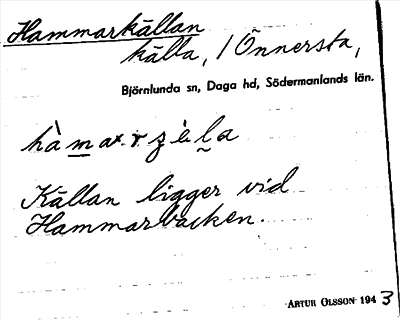 Hammarkällan
källa, / Önnersta,
Björnlunda sn, Daga hd, Södermanlands län.
Källan ligger vid
Hammarbacken.
ARTUR OLSSON 1943